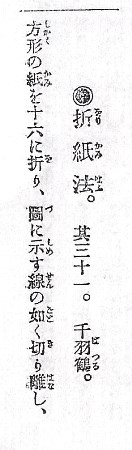 ◎折紙法。其三十一。千羽鶴。
方形の紙を十六に折り、圖に示す線の如く切り離し、